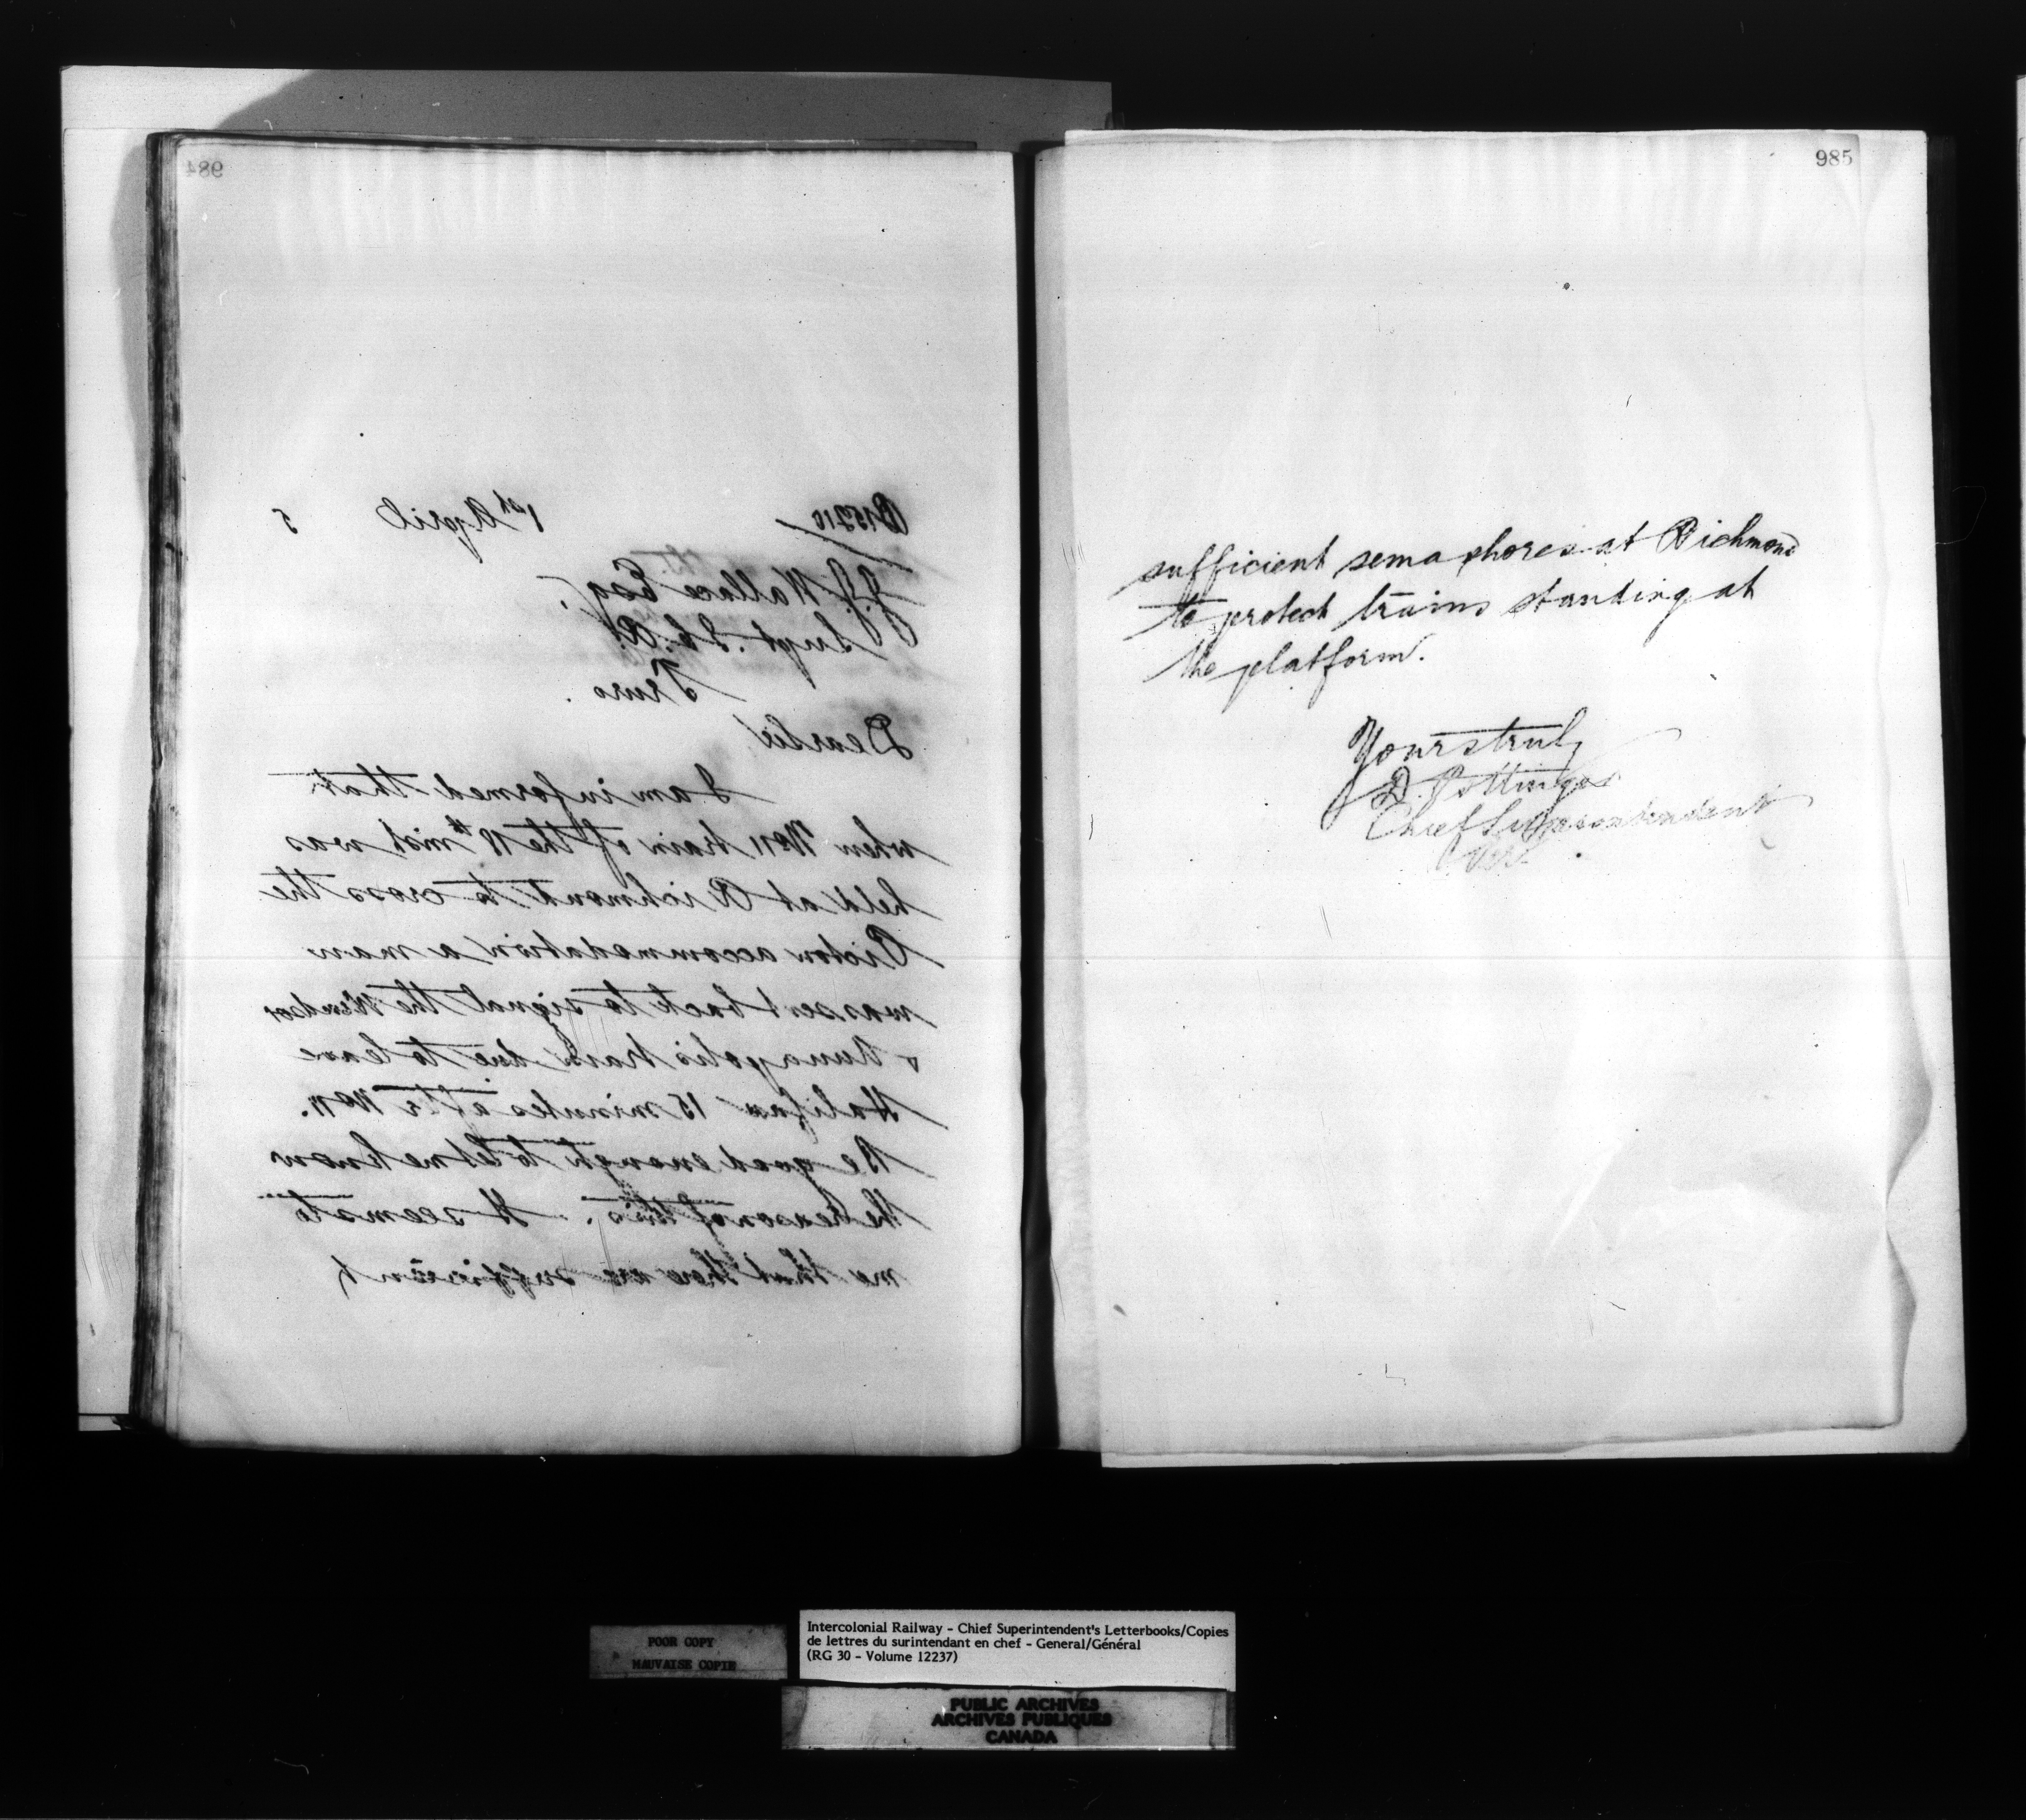 984
B15210 1st April 5
J.J. Wallace Esq.
Supt. I.C.R.
Truro.
Dear Sir
I am informed that
when No 11 train of the 18th inst was
held at Richmond to cross the
Pictou accommodation a man
was sent back to signal the Windsor
& Annapolis train due to leave
Halifax 15 minutes after No 11.
Be good enough to let me know
the reason of this. It seems to
me that there are sufficient
985
sufficient semaphores at Richmond
to protect trains standing at
the platform.
Yours truly
D. Pottinger
Chief Superintendent
POOR COPY
MAUVAISE COPIE
Intercolonial Railway - Chief Superintendent's Letterbooks/Copies
de lettres du surintendant en chef - General/Général
(RG 30 - Volume 12237)
PUBLIC ARCHIVES
ARCHIVES PUBLIQUES
CANADA